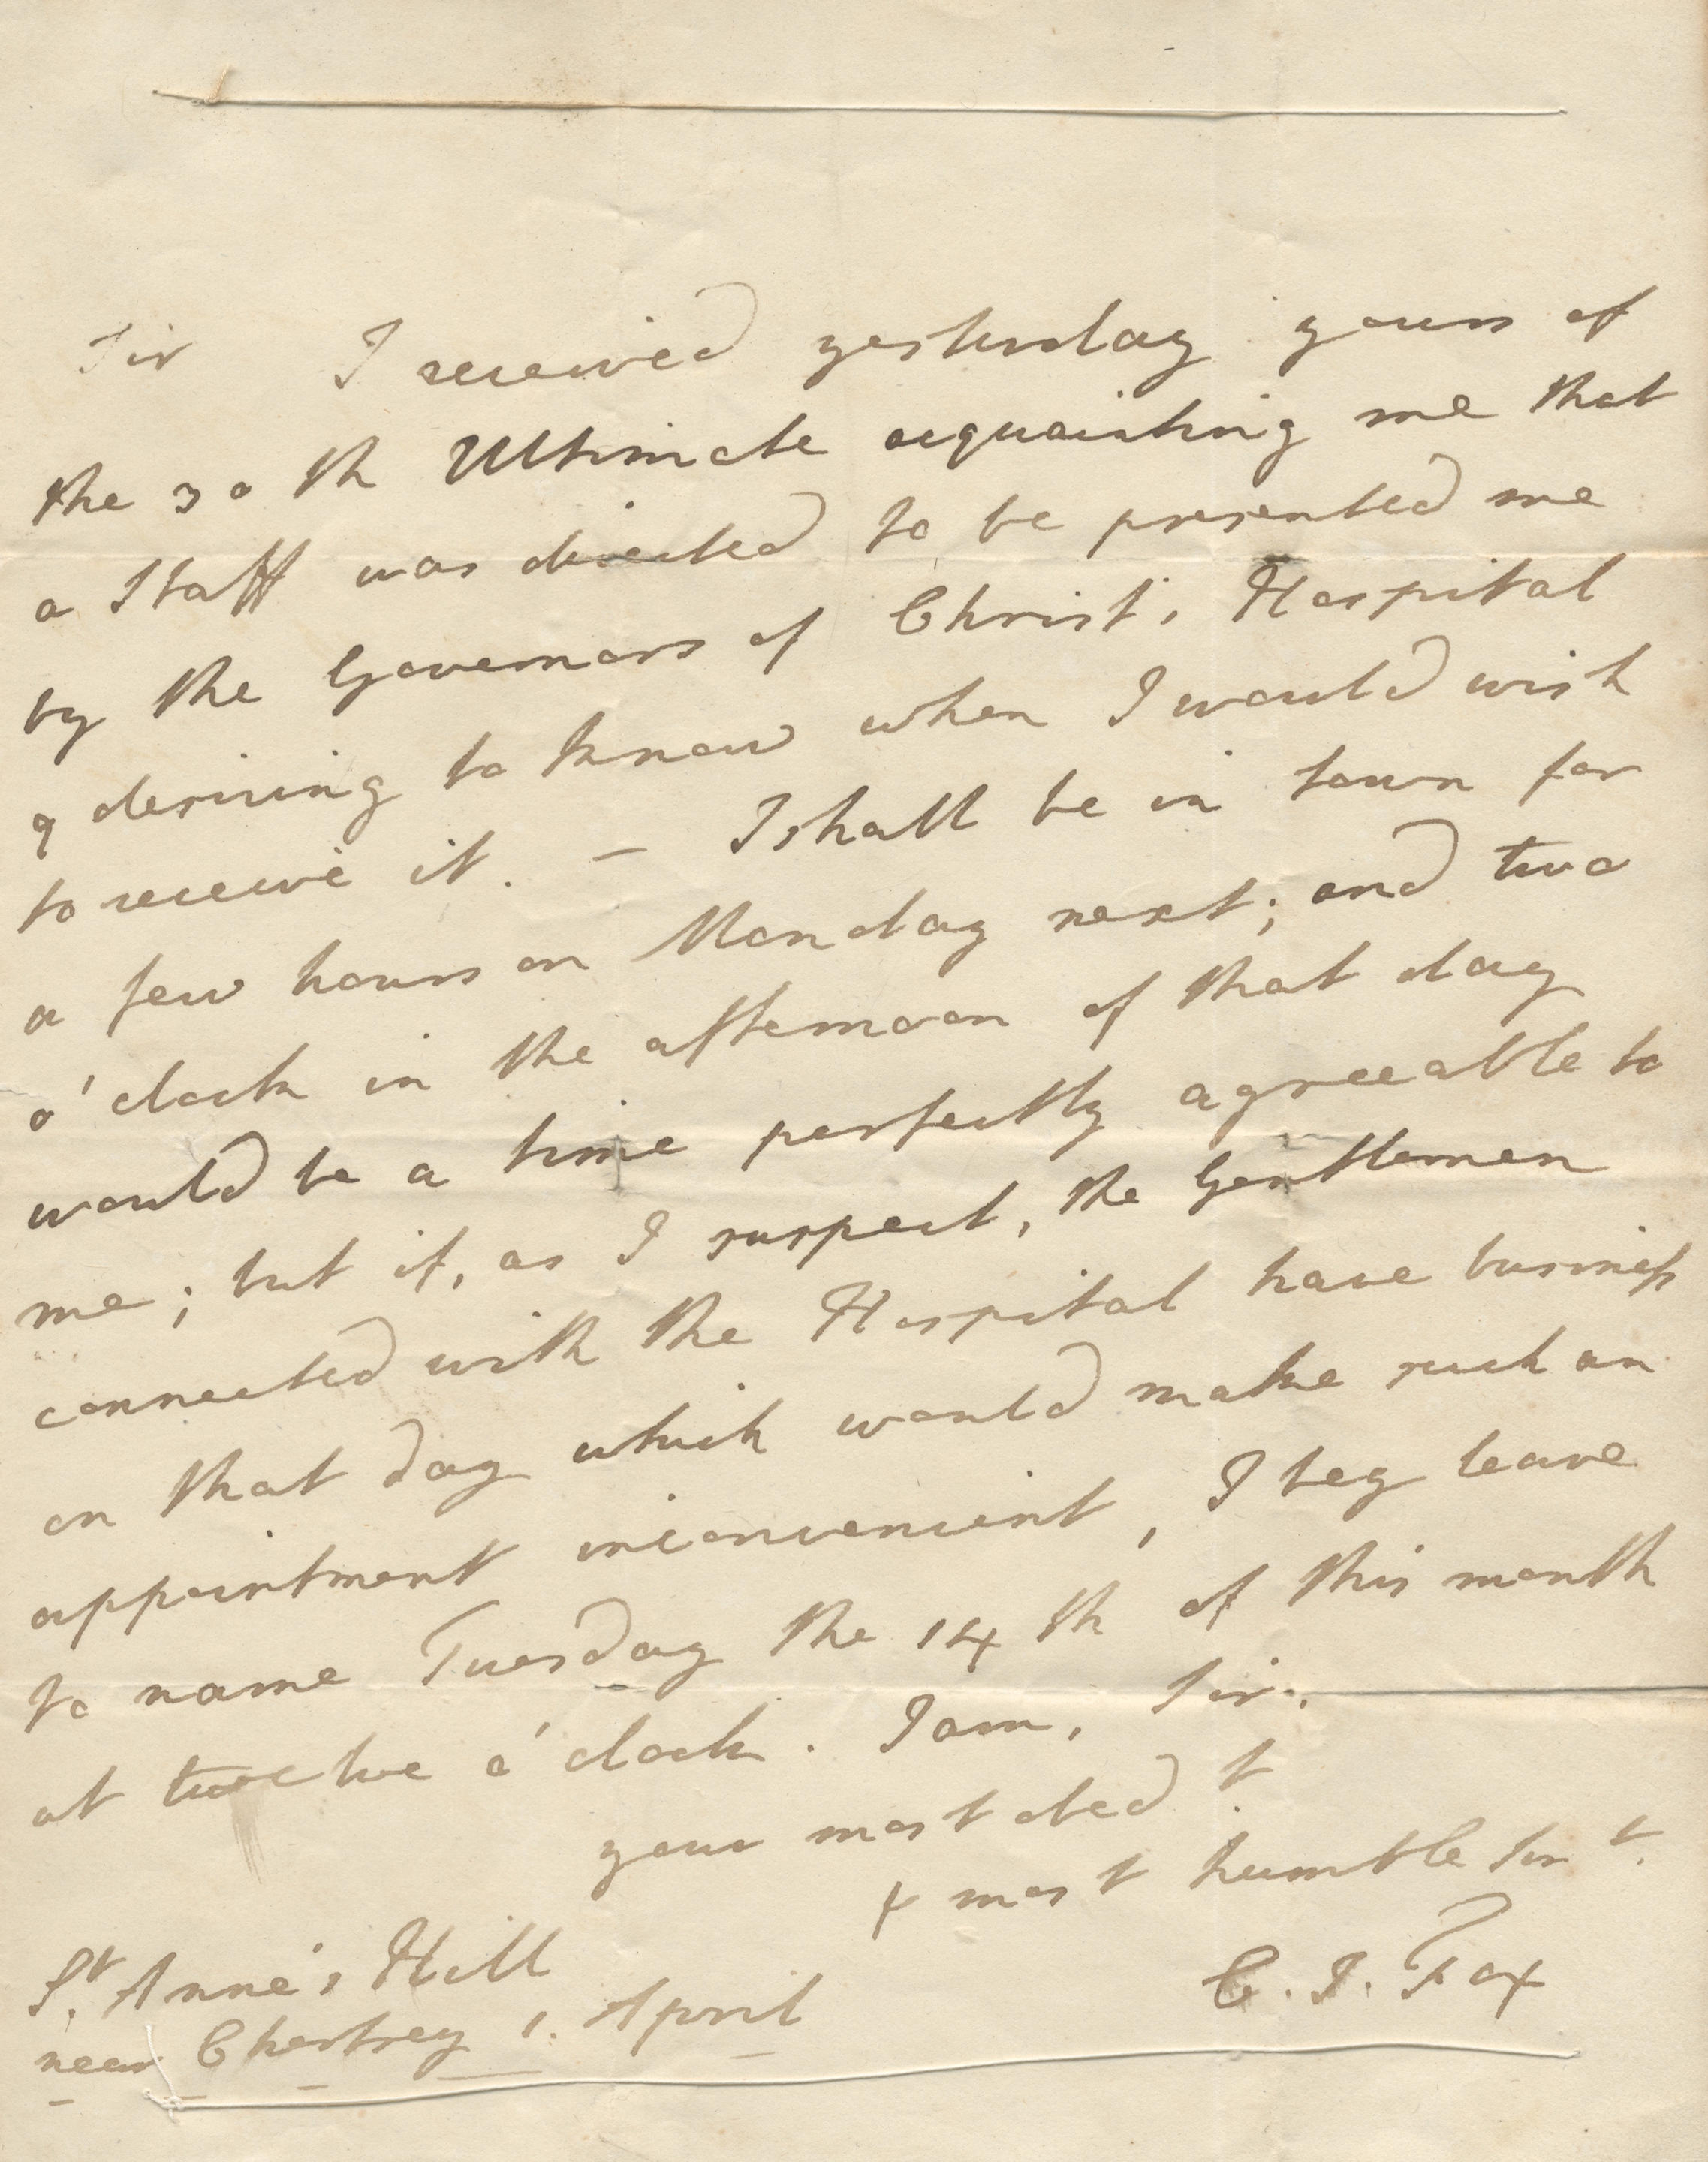 Sir I received yesterday yours of
the 30th Ultimate acquainting me that
a Staff was directed to be presented me
by the Governors of Christ's Hospital
& desiring to know when I would wish
to receive it. – I shall be in town for
a few hours on Monday next; and two
o'clock in the afternoon of that day
would be a time perfectly agreeable to
me; but if, as I suspect, the Gentlemen
connected with the Hospital have business
on that day which would make such an
appointment inconvenient, I beg leave
to name Tuesday the 14th of this month
at twelve o'clock. I am, Sir,
your most obedt.
& most humble Sert.
C. J. Fox
St. Anne's Hill
near Chertsey 1. April